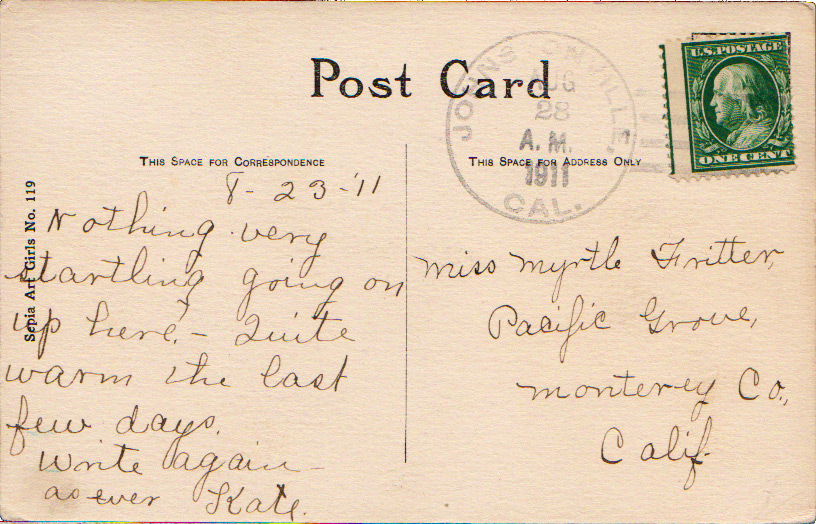 Post Card
JOHNSTONVILLE,
AUG
28
A. M.
1911
CAL.
U.S. POSTAGE
ONE CENT
THIS SPACE FOR CORRESPONDENCE
THIS SPACE FOR ADDRESS ONLY
Sepia Art Girls No. 119
8-23-'11
Nothing very
startling going on
up here. - Quite
warm the last
few days.
Write again -
as ever Kate.
Miss Myrtle Fritter,
Pacific Grove,
Monterey Co.,
Calif.